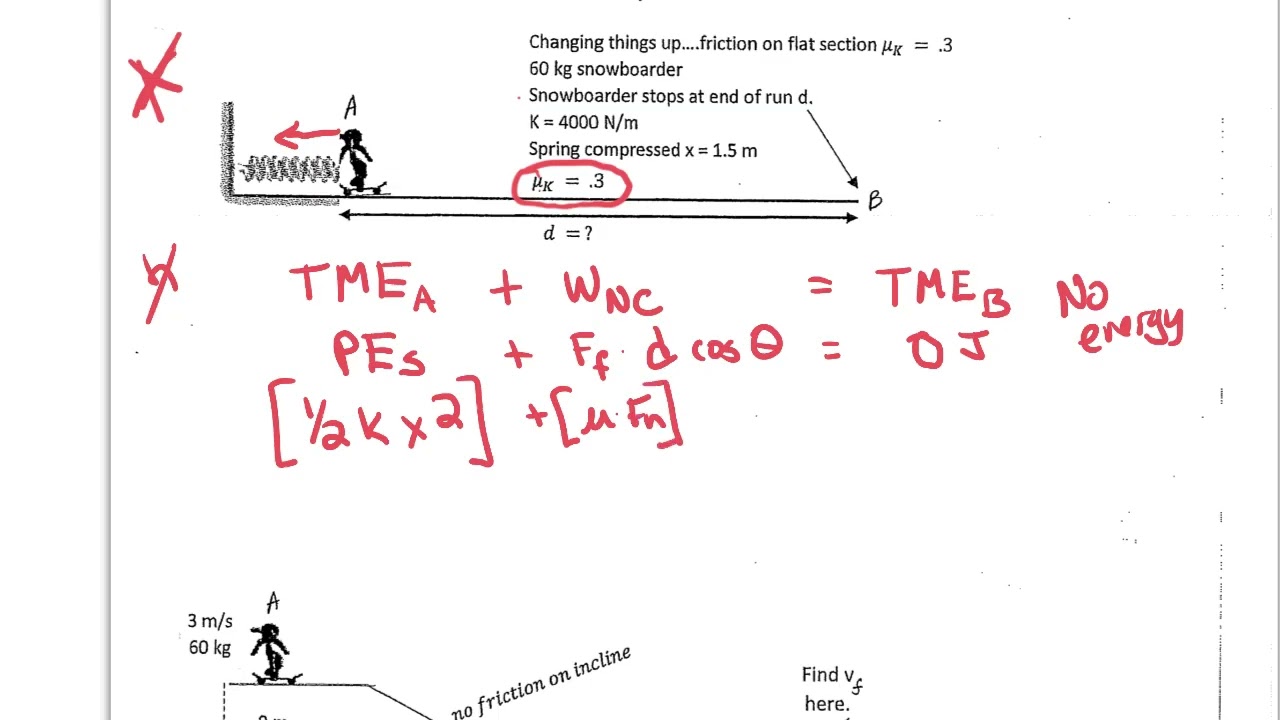 Changing things up....friction on flat section μK = .3
60 kg snowboarder
Snowboarder stops at end of run d.
K = 4000 N/m
Spring compressed x = 1.5 m
μK = .3
A
B
d = ?
TME_A + W_NC = TME_B No energy
PE_s + F_f · d cos θ = 0 J
[½ K x²] + [μ · Fn]
A
3 m/s
60 kg
no friction on incline
Find v_f
here.